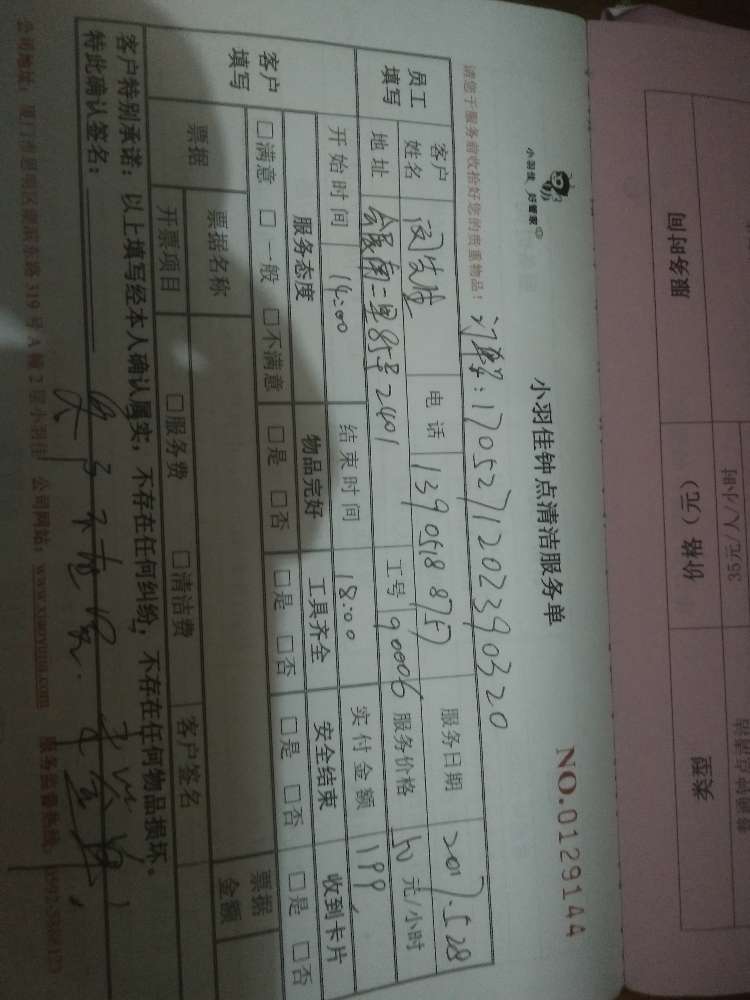 小羽佳 好管家
小羽佳钟点清洁服务单
NO.0129144
请您于服务前收拾好您的贵重物品!
订单号:1705271202390320
员工填写
客户姓名
电话 13905188757
服务日期 2017.5.28
地址
南二里85号2401
工号 90006
服务价格 50元/小时
开始时间 14:00
结束时间 18:00
实付金额 199
客户填写
服务态度 物品完好 工具齐全 安全结束 收到卡片
□满意 □一般 □不满意 □是 □否 □是 □否 □是 □否 □是 □否
票据
票据名称
票据金额
开票项目 □服务费 □清洁费 客户签名
客户特别承诺:以上填写经本人确认属实,不存在任何纠纷,不存在任何物品损坏。
特此确认签名:
公司地址:厦门市思明区湖滨东路319号A幢2层小羽佳 公司网站:www.xiaoyujia.com 服务监督热线:
服务时间 价格(元) 类型
35元/人/小时